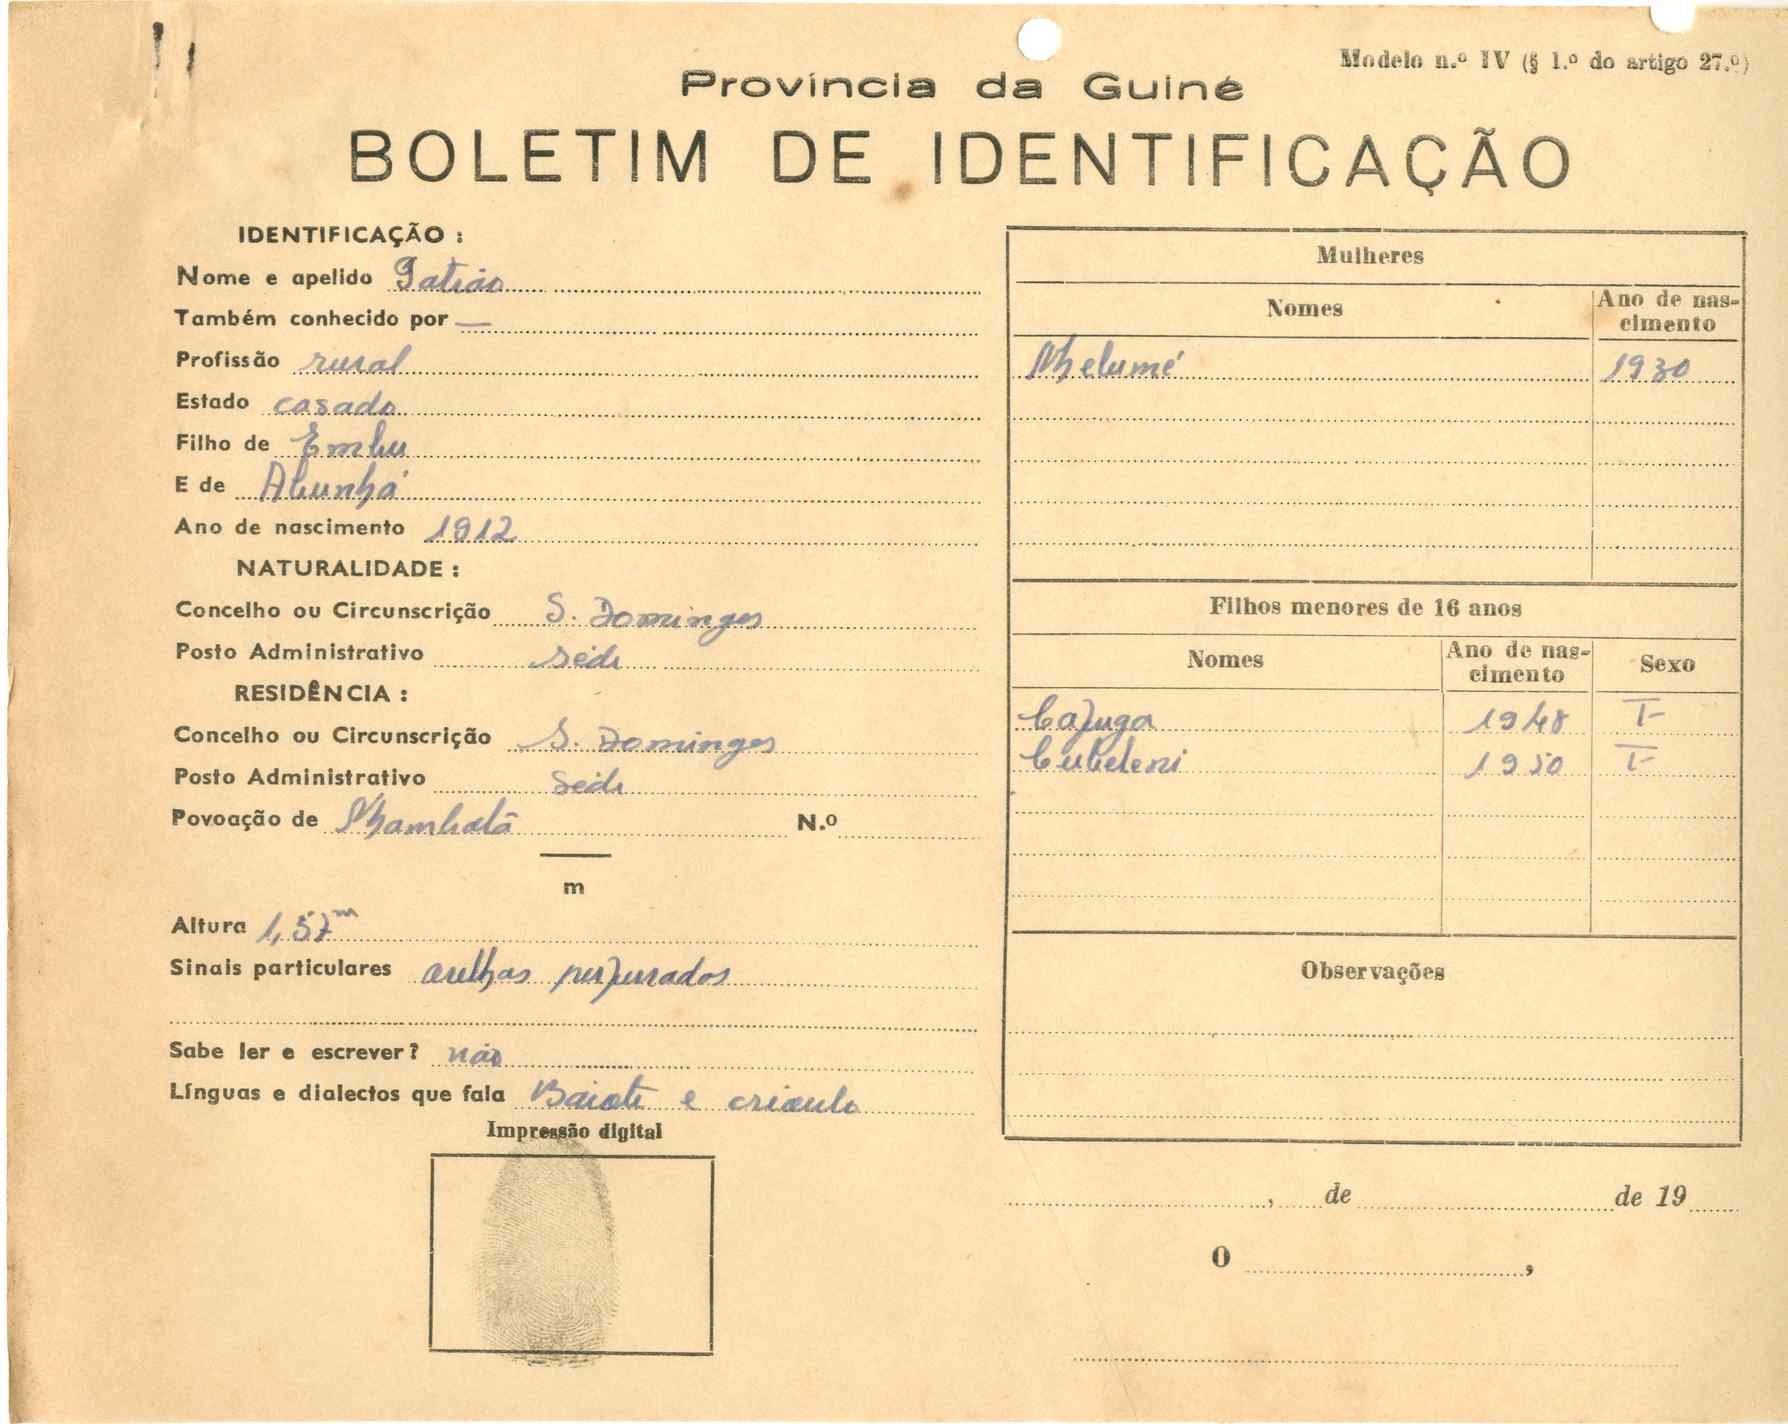 Modelo n.º IV (§ 1.º do artigo 27.º)
Província da Guiné
BOLETIM DE IDENTIFICAÇÃO
IDENTIFICAÇÃO :
Nome e apelido
Também conhecido por —
Profissão rural
Estado casado
Filho de Embu
E de Abunhá
Ano de nascimento 1912
NATURALIDADE :
Concelho ou Circunscrição S. Domingos
Posto Administrativo Sede
RESIDÊNCIA :
Concelho ou Circunscrição S. Domingos
Posto Administrativo Sede
Povoação de Nhambalã N.º
m
Altura 1,57m
Sinais particulares orelhas perfurados
Sabe ler e escrever? não
Línguas e dialectos que fala Baiote e crioulo
Impressão digital
Mulheres
Nomes Ano de nas-
cimento
Nhelumé 1930
Filhos menores de 16 anos
Nomes Ano de nas- Sexo
cimento
Cajuga 1948 F
1950 F
Observações
, de de 19
O ,